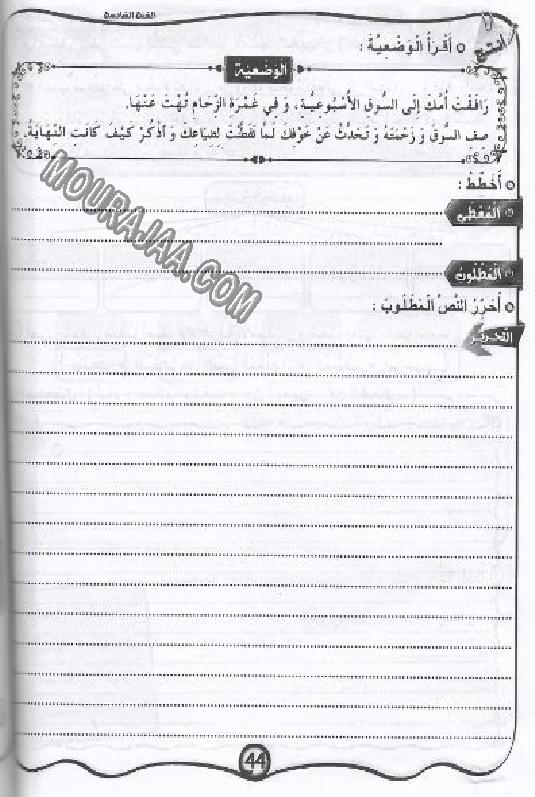 السنة السادسة
أنتج
أَقْرَأُ الْوَضْعِيَّةَ :
الوَضْعِيَّة
رَافَقْتَ أُمَّكَ إِلَى السُّوقِ الأُسْبُوعِيَّةِ، وَ فِي غَمْرَةِ الزِّحَامِ تُهْتَ عَنْهَا.
صِفِ السُّوقَ وَ زَحْمَتَهُ وَ تَحَدَّثْ عَنْ خَوْفِكَ لَمَّا تَفَطَّنْتَ لِضَيَاعِكَ وَ اذْكُرْ كَيْفَ كَانَتِ النِّهَايَةُ.
أُخَطِّطُ :
الْمُعْطَى
الْمَطْلُوبُ
أُحَرِّرُ النَّصَّ الْمَطْلُوبَ :
التَّحْرِيرُ
MOURAJAA.COM
44